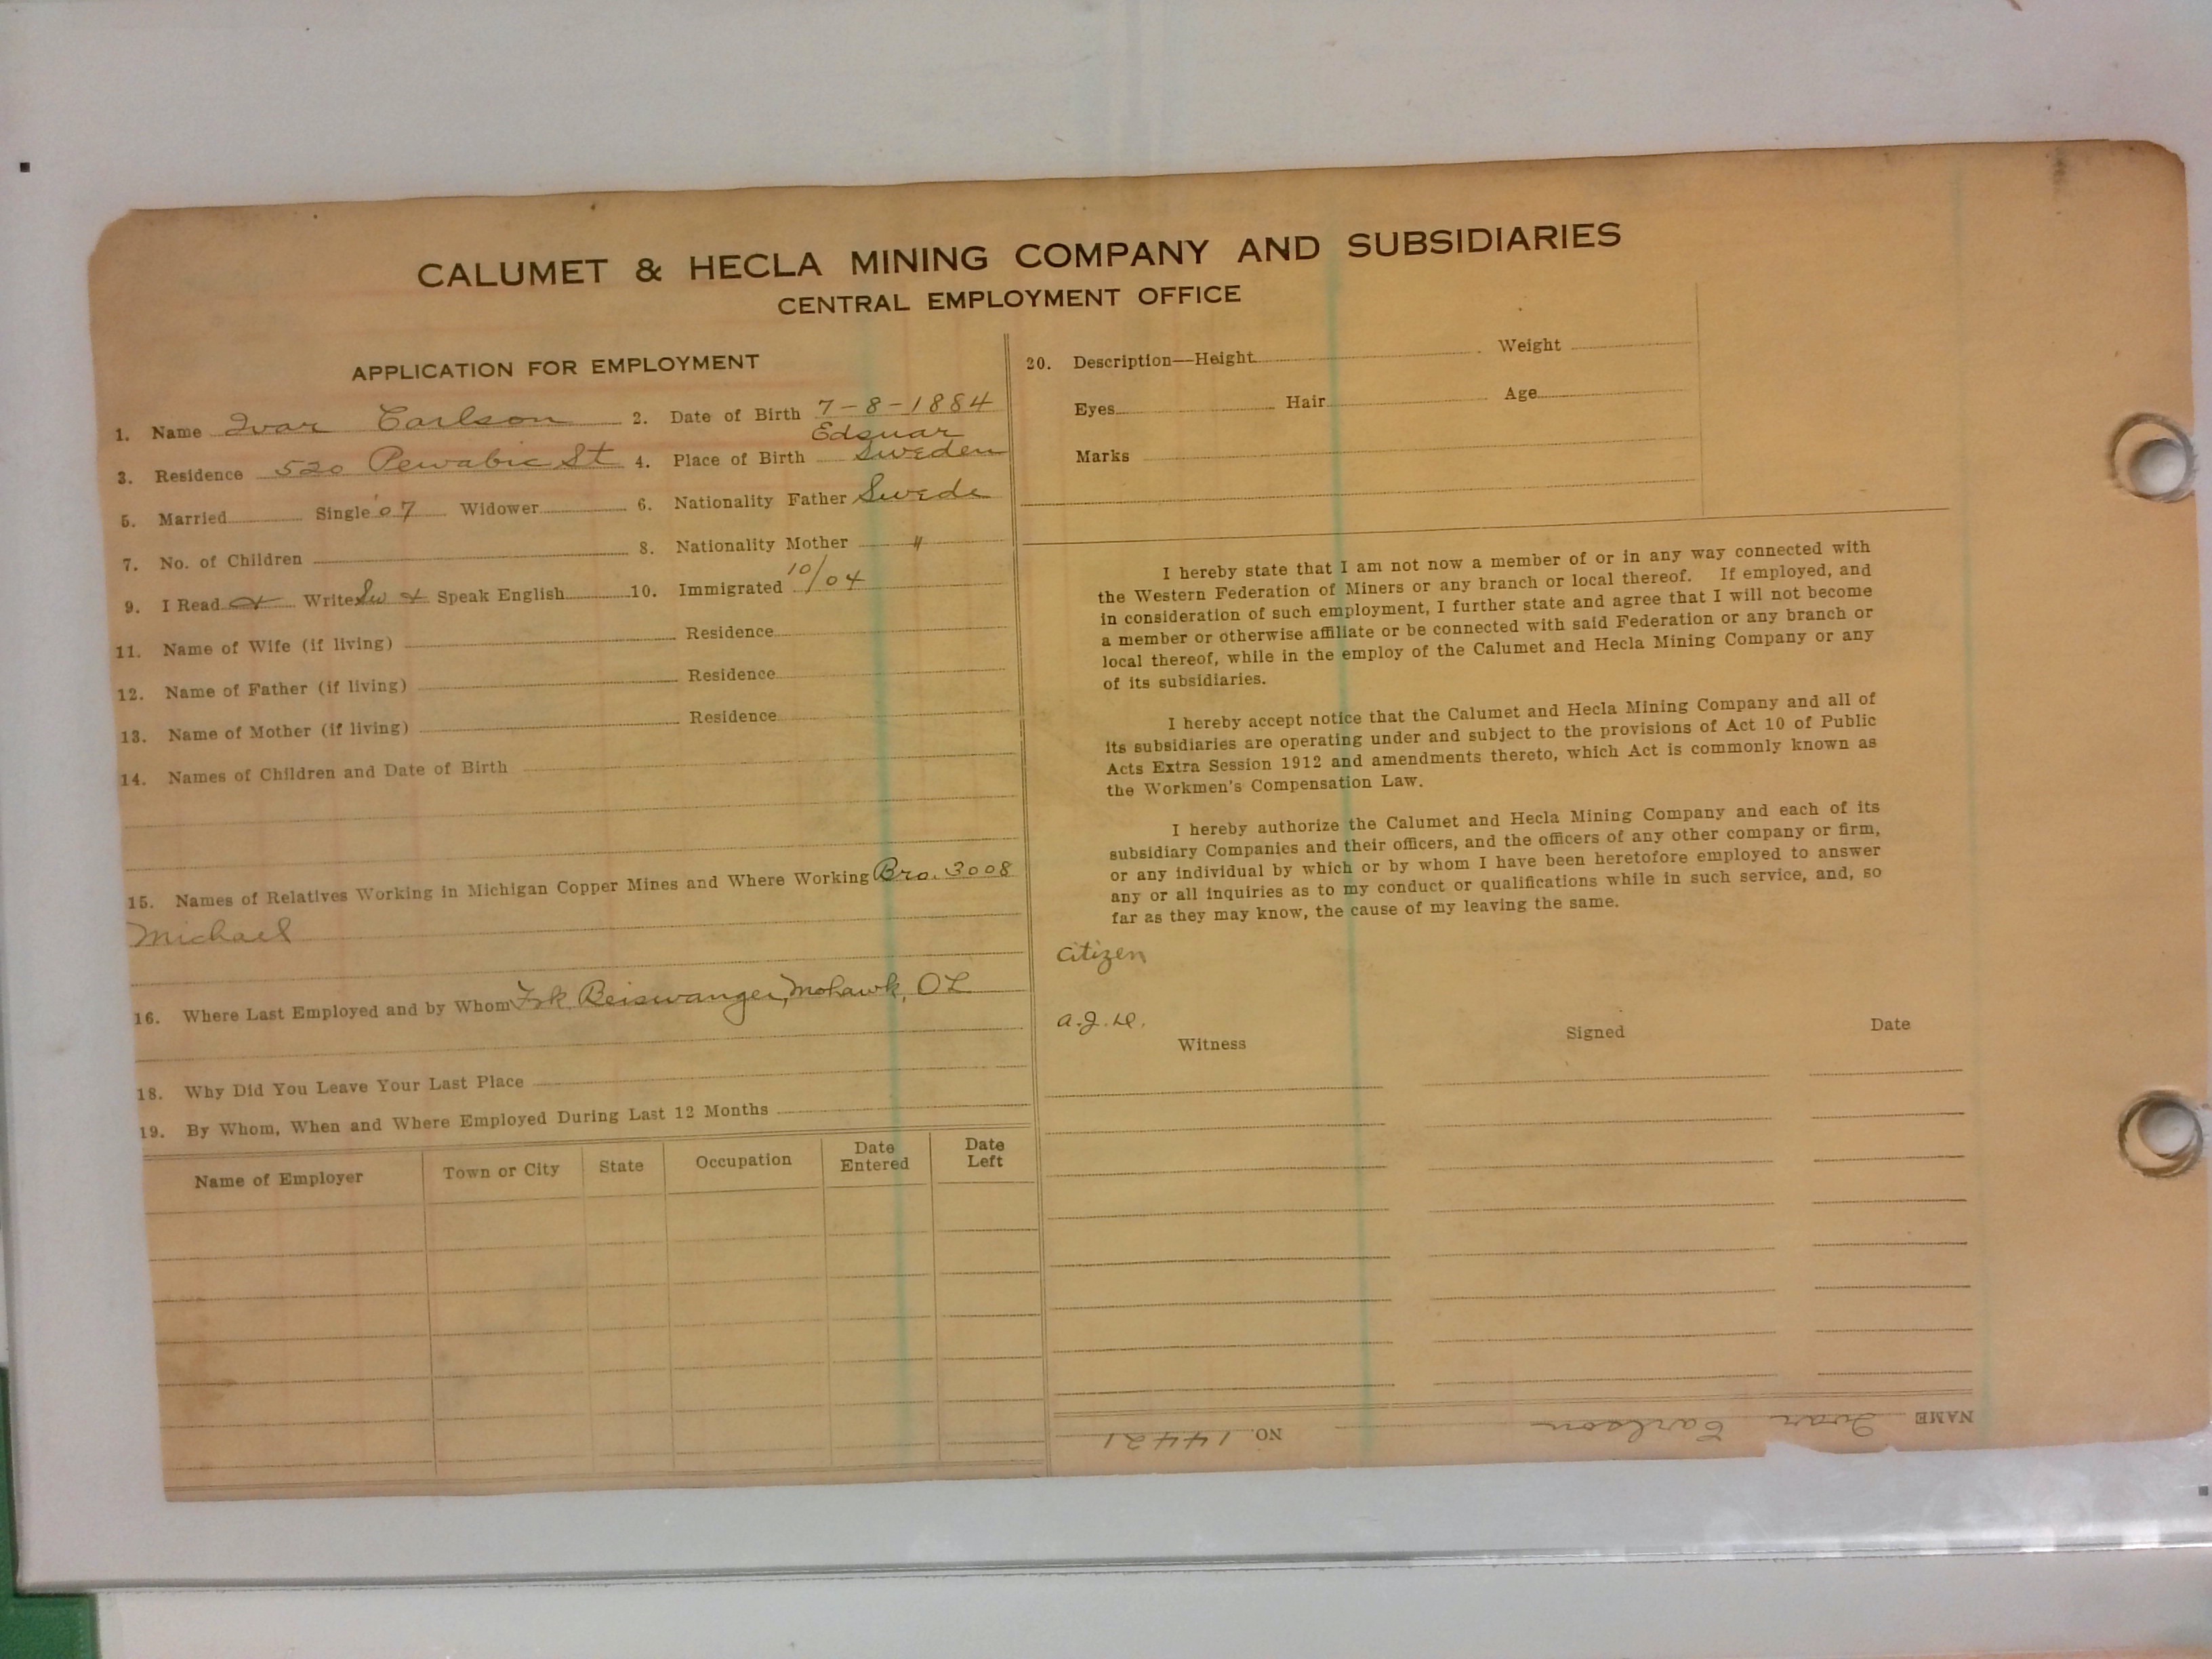 CALUMET & HECLA MINING COMPANY AND SUBSIDIARIES
CENTRAL EMPLOYMENT OFFICE
APPLICATION FOR EMPLOYMENT
1. Name Ivar Carlson 2. Date of Birth 7-8-1884
Edsuar
3. Residence 520 Pewabic St 4. Place of Birth Sweden
5. Married Single '07 Widower 6. Nationality Father Swede
7. No. of Children 8. Nationality Mother "
9. I Read & Write Sw & Speak English 10. Immigrated 10/04
11. Name of Wife (if living) Residence
12. Name of Father (if living) Residence
13. Name of Mother (if living) Residence
14. Names of Children and Date of Birth
15. Names of Relatives Working in Michigan Copper Mines and Where Working Bro. 3008
Michael
16. Where Last Employed and by Whom Frk Beiswanger, Mohawk, OL
18. Why Did You Leave Your Last Place
19. By Whom, When and Where Employed During Last 12 Months
Name of Employer Town or City State Occupation Date Entered Date Left
20. Description—Height Weight
Eyes Hair Age
Marks
I hereby state that I am not now a member of or in any way connected with
the Western Federation of Miners or any branch or local thereof. If employed, and
in consideration of such employment, I further state and agree that I will not become
a member or otherwise affiliate or be connected with said Federation or any branch or
local thereof, while in the employ of the Calumet and Hecla Mining Company or any
of its subsidiaries.
I hereby accept notice that the Calumet and Hecla Mining Company and all of
its subsidiaries are operating under and subject to the provisions of Act 10 of Public
Acts Extra Session 1912 and amendments thereto, which Act is commonly known as
the Workmen's Compensation Law.
I hereby authorize the Calumet and Hecla Mining Company and each of its
subsidiary Companies and their officers, and the officers of any other company or firm,
or any individual by which or by whom I have been heretofore employed to answer
any or all inquiries as to my conduct or qualifications while in such service, and, so
far as they may know, the cause of my leaving the same.
Citizen
Witness Signed Date
NAME Ivar Carlson NO. 14421